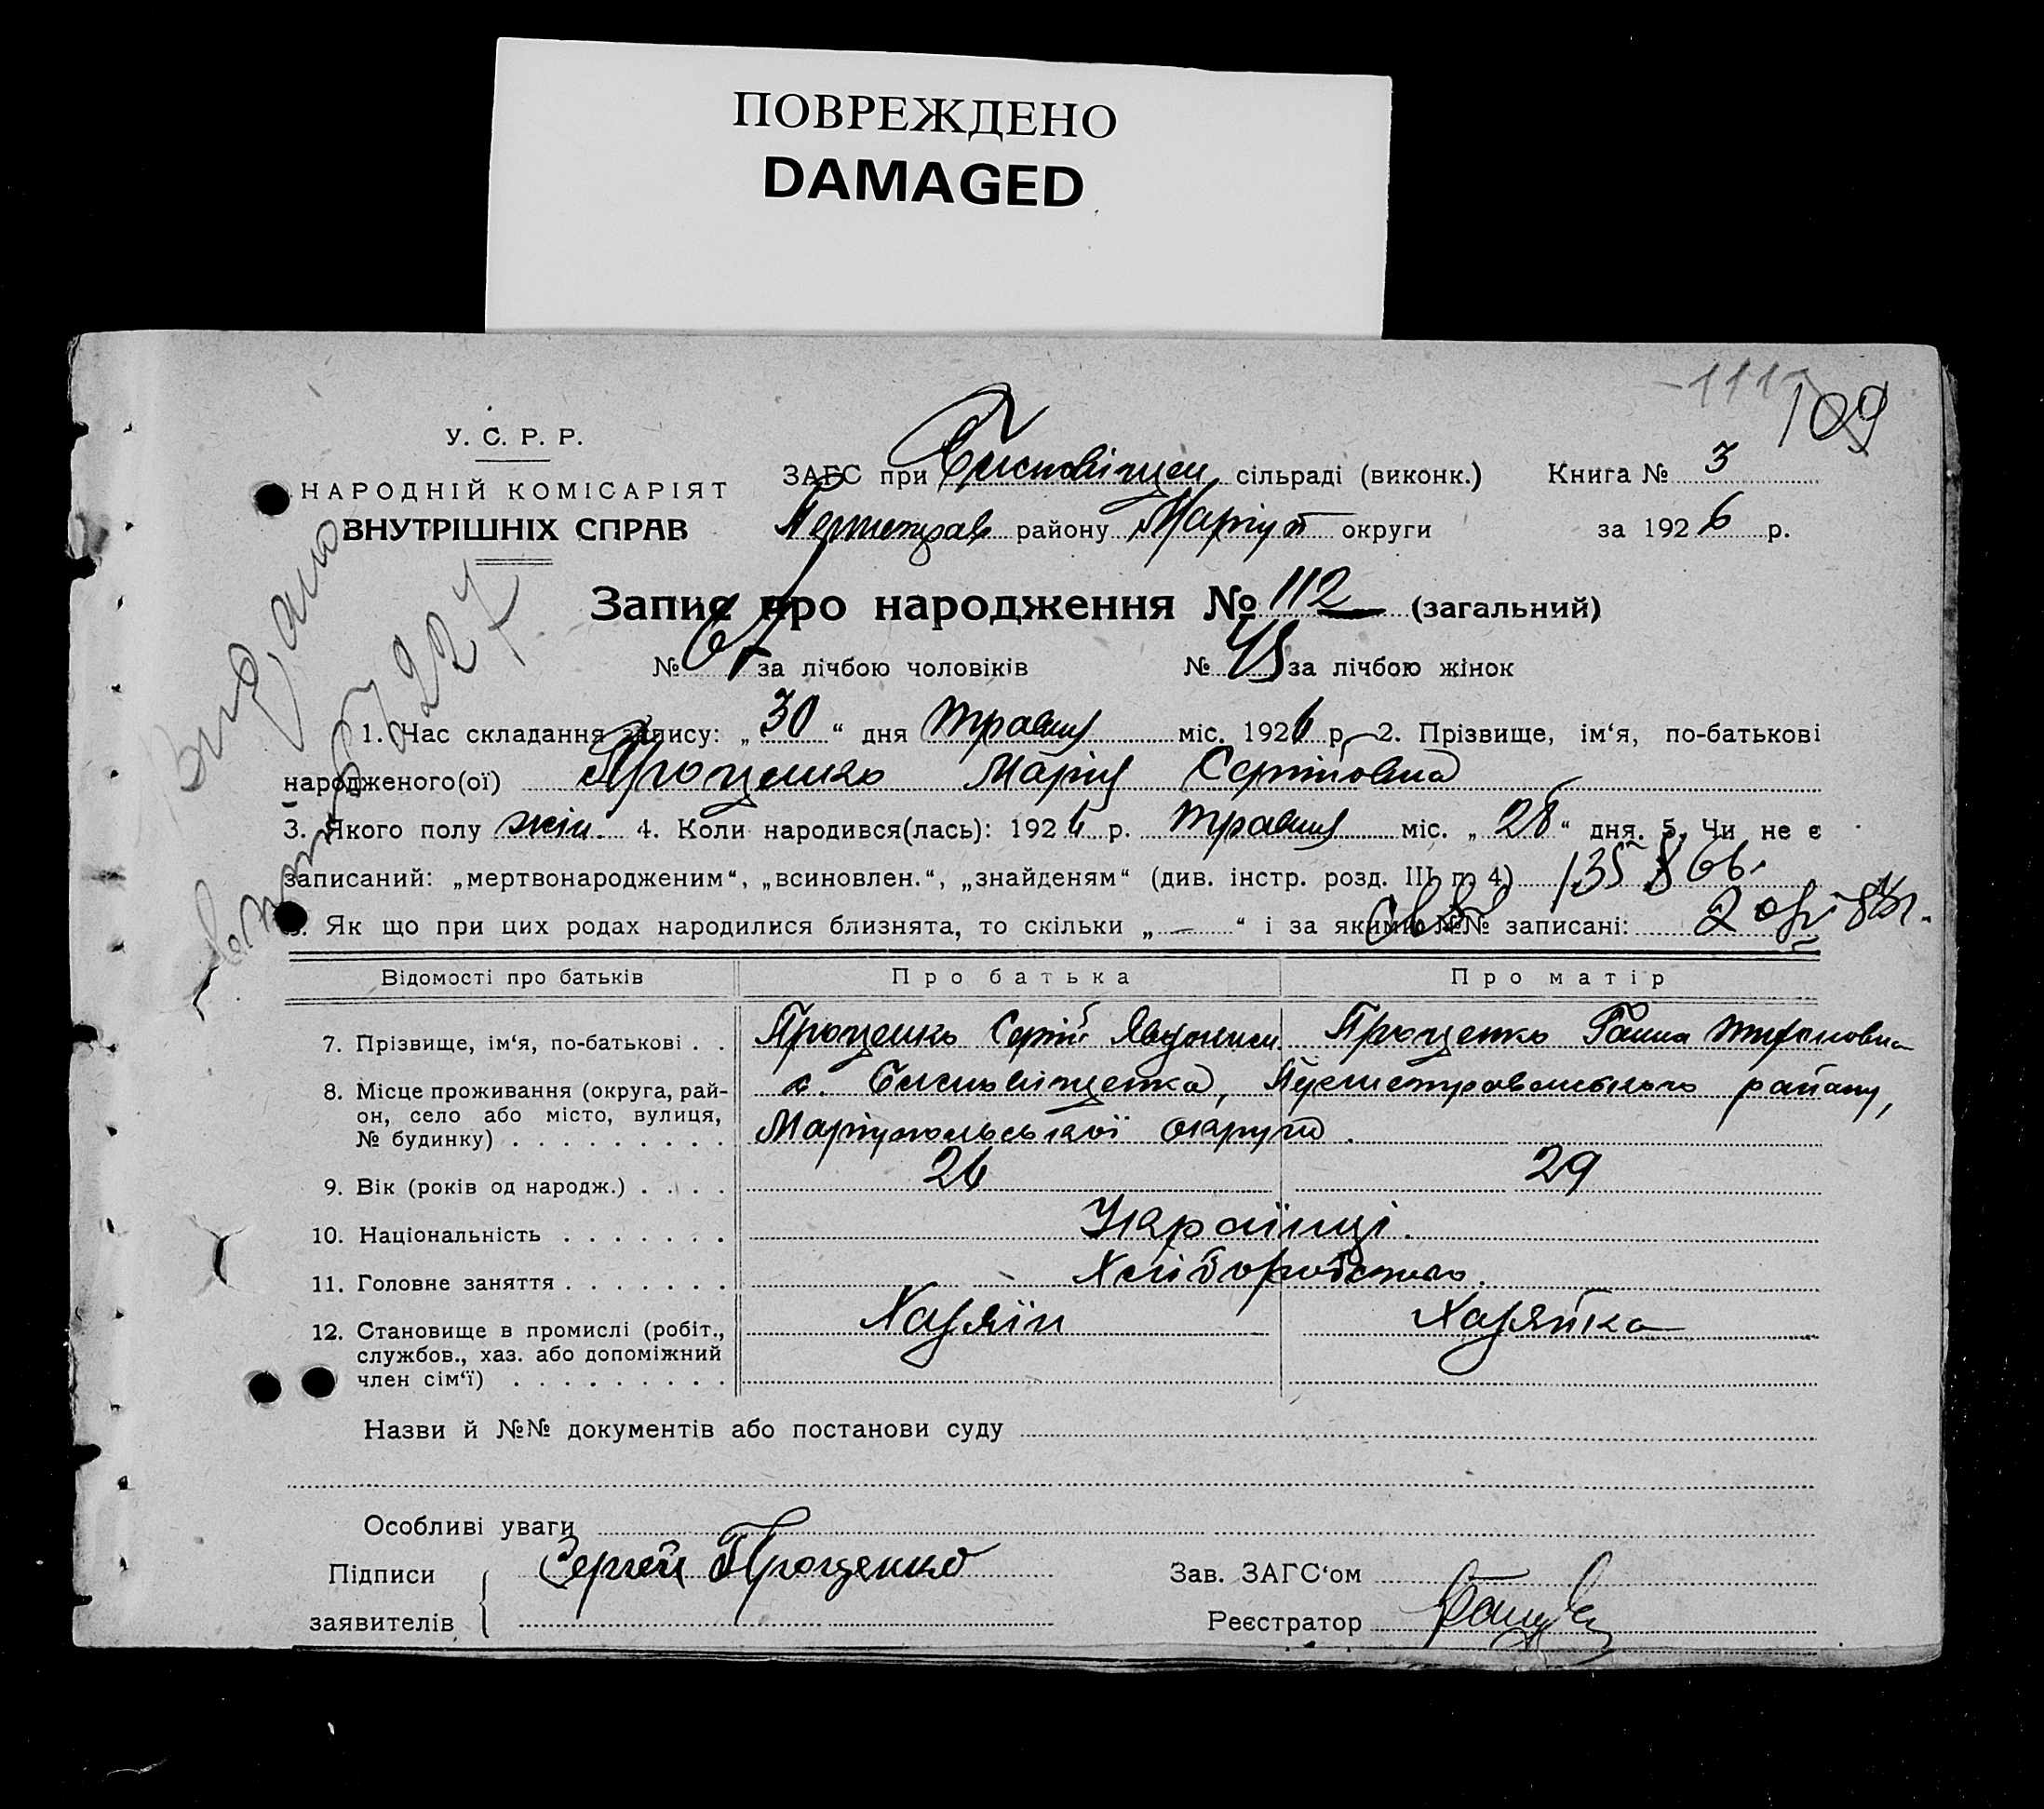 ПОВРЕЖДЕНО
DAMAGED
-111-
109
У. С. Р. Р.
НАРОДНІЙ КОМІСАРІЯТ
ВНУТРІШНІХ СПРАВ
ЗАГС при сільраді (виконк.) Книга № 3
району Маріуп округи за 1926 р.
Запис про народження № 112 (загальний)
№ за лічбою чоловіків № 45 за лічбою жінок
1. Час складання запису: „30“ дня травня міс. 1926 р. 2. Прізвище, ім‘я, по-батькові
народженого(ої) Проценко Марія Сергіївна
3. Якого полу жін. 4. Коли народився(лась): 1926 р. травня міс. „28“ дня. 5. Чи не є
записаний: „мертвонародженим“, „всиновлен.“, „знайденям“ (див. інстр. розд. III п. 4)
6. Як що при цих родах народилися близнята, то скільки „—“ і за якими №№ записані:
Відомості про батьків Про батька Про матір
7. Прізвище, ім‘я, по-батькові . . Проценко Сергій Проценко Ганна
8. Місце проживання (округа, рай-
он, село або місто, вулиця,
№ будинку) . . . . . . . . . Маріупольської округи.
району,
9. Вік (років од народж.) . . . . 26 29
10. Національність . . . . . . . Українці.
11. Головне заняття . . . . . . . Хліборобство.
12. Становище в промислі (робіт.,
службов., хаз. або допоміжний
член сім‘ї) . . . . . . . . . Хазяїн Хазяйка
Назви й №№ документів або постанови суду
Особливі уваги
Підписи
заявителів
Сергей Проценко
Зав. ЗАГС‘ом
Реєстратор